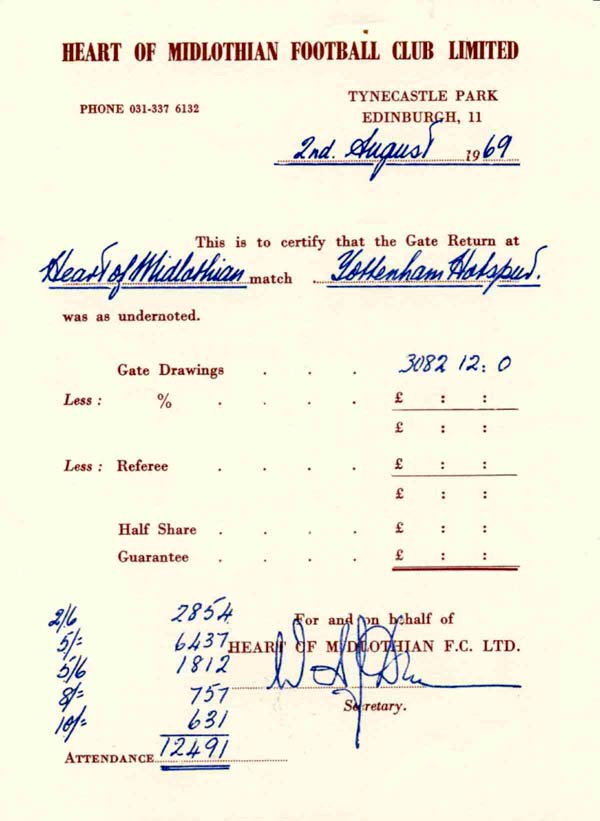 HEART OF MIDLOTHIAN FOOTBALL CLUB LIMITED
PHONE 031-337 6132
TYNECASTLE PARK
EDINBURGH, 11
2nd. August 1969
This is to certify that the Gate Return at
Heart of Midlothian match Tottenham Hotspur.
was as undernoted.
Gate Drawings . . . 3082 12: 0
Less : % . . . . £ : :
£ : :
Less : Referee . . . . £ : :
£ : :
Half Share . . . . £ : :
Guarantee . . . . £ : :
2/6 2854
5/= 6437
5/6 1812
8/= 757
10/= 631
ATTENDANCE 12491
For and on behalf of
HEART OF MIDLOTHIAN F.C. LTD.
Secretary.